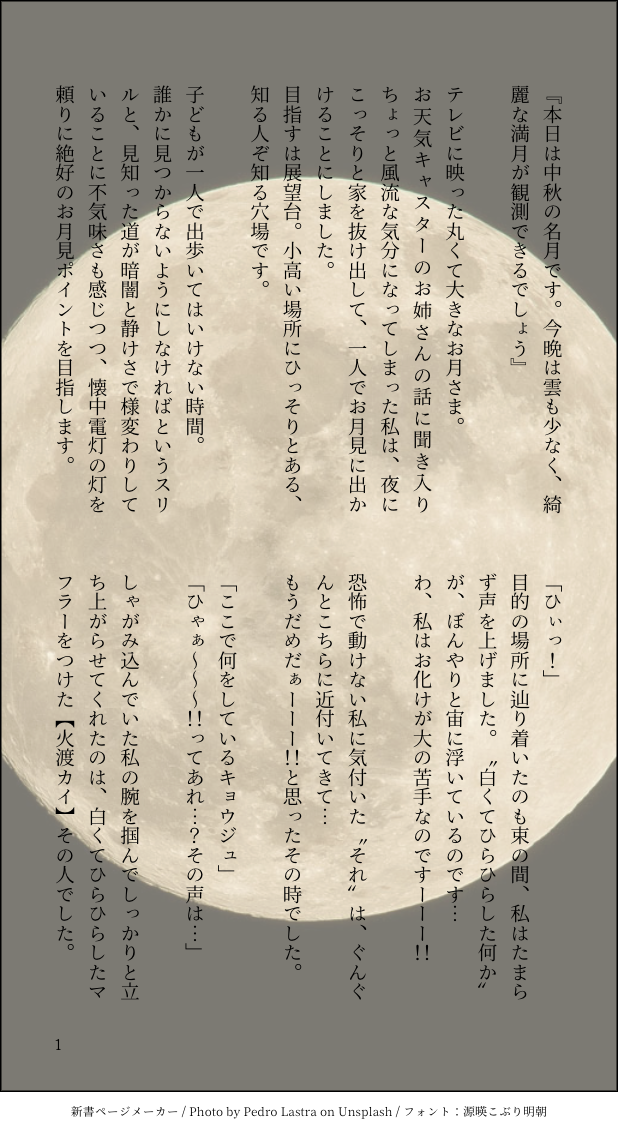 『本日は中秋の名月です。今晩は雲も少なく、綺
麗な満月が観測できるでしょう』
テレビに映った丸くて大きなお月さま。
お天気キャスターのお姉さんの話に聞き入り
ちょっと風流な気分になってしまった私は、夜に
こっそりと家を抜け出して、一人でお月見に出か
けることにしました。
目指すは展望台。小高い場所にひっそりとある、
知る人ぞ知る穴場です。
子どもが一人で出歩いてはいけない時間。
誰かに見つからないようにしなければというスリ
ルと、見知った道が暗闇と静けさで様変わりして
いることに不気味さも感じつつ、懐中電灯の灯を
頼りに絶好のお月見ポイントを目指します。
「ひぃっ！」
目的の場所に辿り着いたのも束の間、私はたまら
ず声を上げました。〝白くてひらひらした何か〟
が、ぼんやりと宙に浮いているのです…
わ、私はお化けが大の苦手なのですーーー!!
恐怖で動けない私に気付いた〝それ〟は、ぐんぐ
んとこちらに近付いてきて…
もうだめだぁーーー!!と思ったその時でした。
「ここで何をしているキョウジュ」
「ひゃぁ～～～!!ってあれ…？その声は…」
しゃがみ込んでいた私の腕を掴んでしっかりと立
ち上がらせてくれたのは、白くてひらひらしたマ
フラーをつけた【火渡カイ】その人でした。
1
新書ページメーカー / Photo by Pedro Lastra on Unsplash / フォント：源暎こぶり明朝